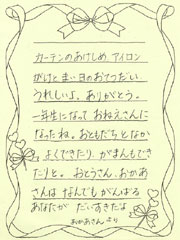 カーテンのあけしめ、アイロン
がけとまい日のおてつだい
うれしいよ。ありがとう。
一年生になっておねえさんに
なったね。おともだちとなか
よくできたり、がまんもでき
たりと。おとうさん、おかあ
さんは なんでもがんばる
あなたが だいすきだよ
おかあさんより